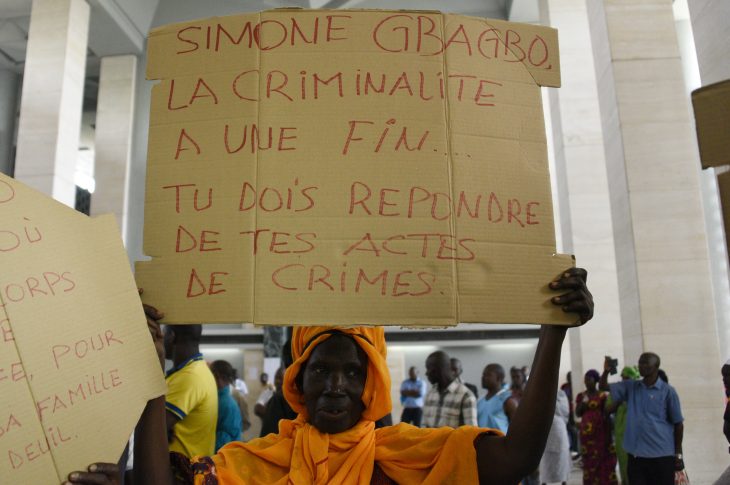 SIMONE GBAGBO,
LA CRIMINALITE
A UNE FIN....
TU DOIS REPONDRE
DE TES ACTES
DE CRIMES.
OÙ
CORPS
POUR
FAMILLE
DEUIL.